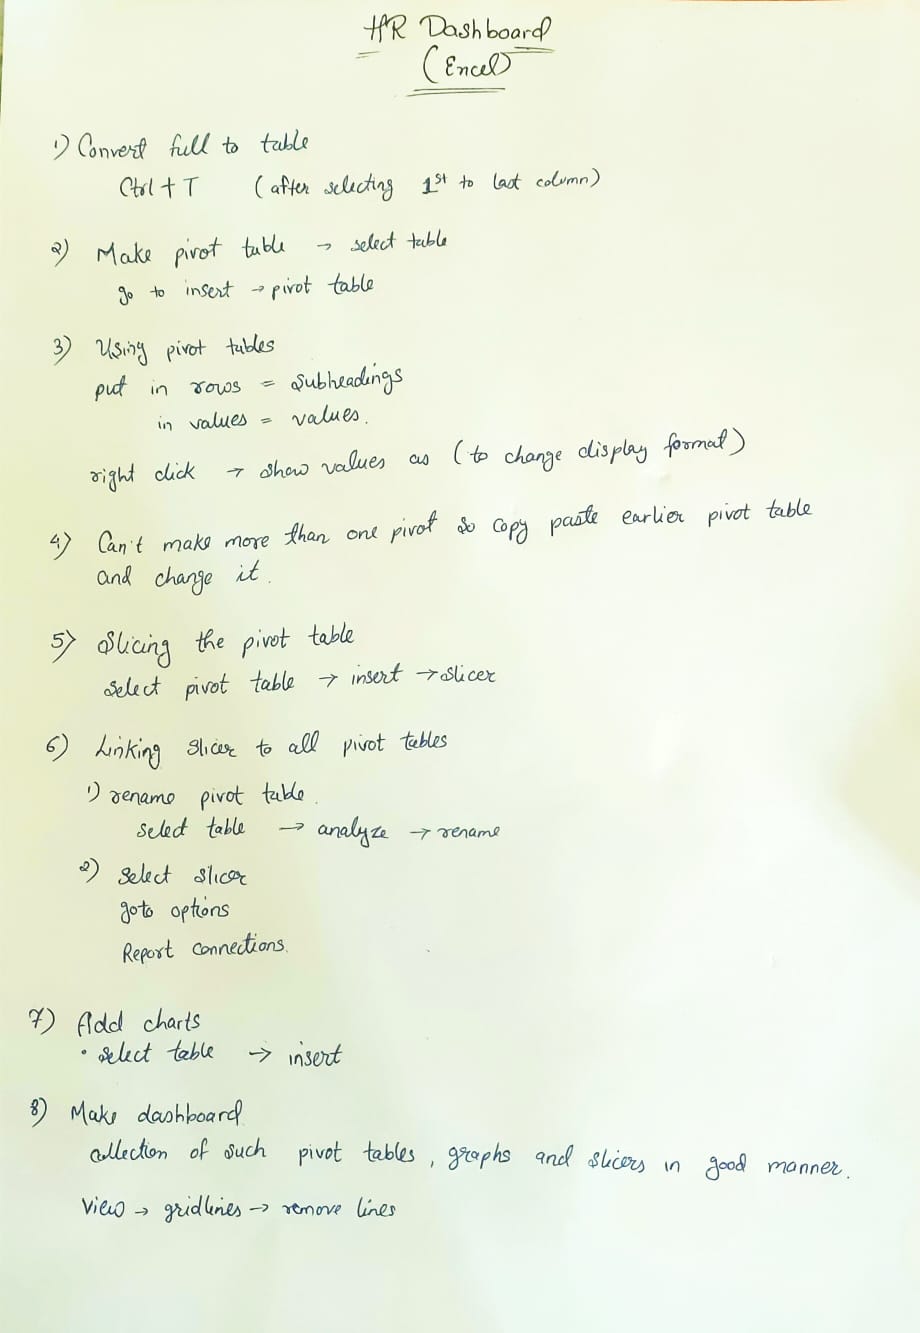 HR Dashboard
(Excel)
1) Convert full to table
Ctrl + T (after selecting 1st to last column)
2) Make pivot table → select table
go to insert → pivot table
3) Using pivot tables
put in rows = Subheadings
in values = values.
right click → show values as (to change display format)
4) Can't make more than one pivot so copy paste earlier pivot table
and change it.
5) Slicing the pivot table
select pivot table → insert → slicer
6) Linking slicer to all pivot tables
1) rename pivot table.
select table → analyze → rename
2) Select slicer
goto options
Report connections.
7) Add charts
• select table → insert
8) Make dashboard
collection of such pivot tables, graphs and slicers in good manner.
View → gridlines → remove lines